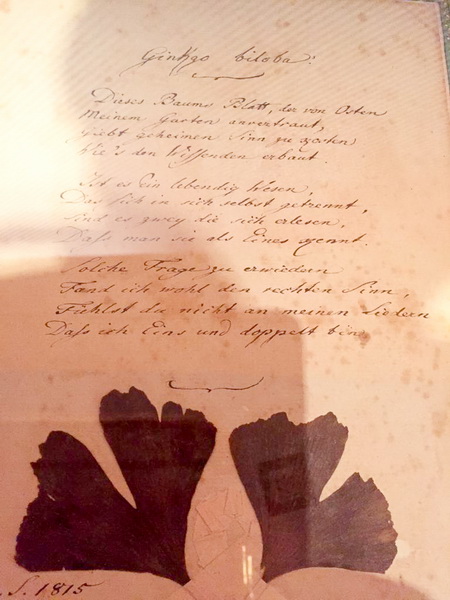 Ginkgo biloba.
Dieses Baums Blatt, der von Osten
Meinem Garten anvertraut,
Giebt geheimen Sinn zu kosten
Wie's den Wissenden erbaut.
Ist es Ein lebendig Wesen,
Das sich in sich selbst getrennt,
Sind es zwey die sich erlesen,
Dass man sie als Eines kennt.
Solche Frage zu erwiedern
Fand ich wohl den rechten Sinn,
Fühlst du nicht an meinen Liedern
Dass ich Eins und doppelt bin
S. 1815